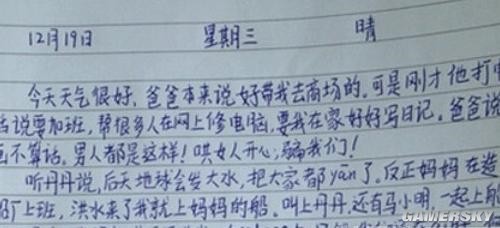 12月19日 星期三 晴
今天天气很好，爸爸本来说好带我去商场的，可是刚才他打电
话说要加班，帮很多人在网上修电脑，要我在家好好写日记。爸爸说
不算话。男人都是这样！哄女人开心，骗我们！
听丹丹说，后天地球会发大水，把大家都yān了，反正妈妈在造
船厂上班，洪水来了我就上妈妈的船。叫上丹丹，还有马小明，一起上船
GAMERSKY